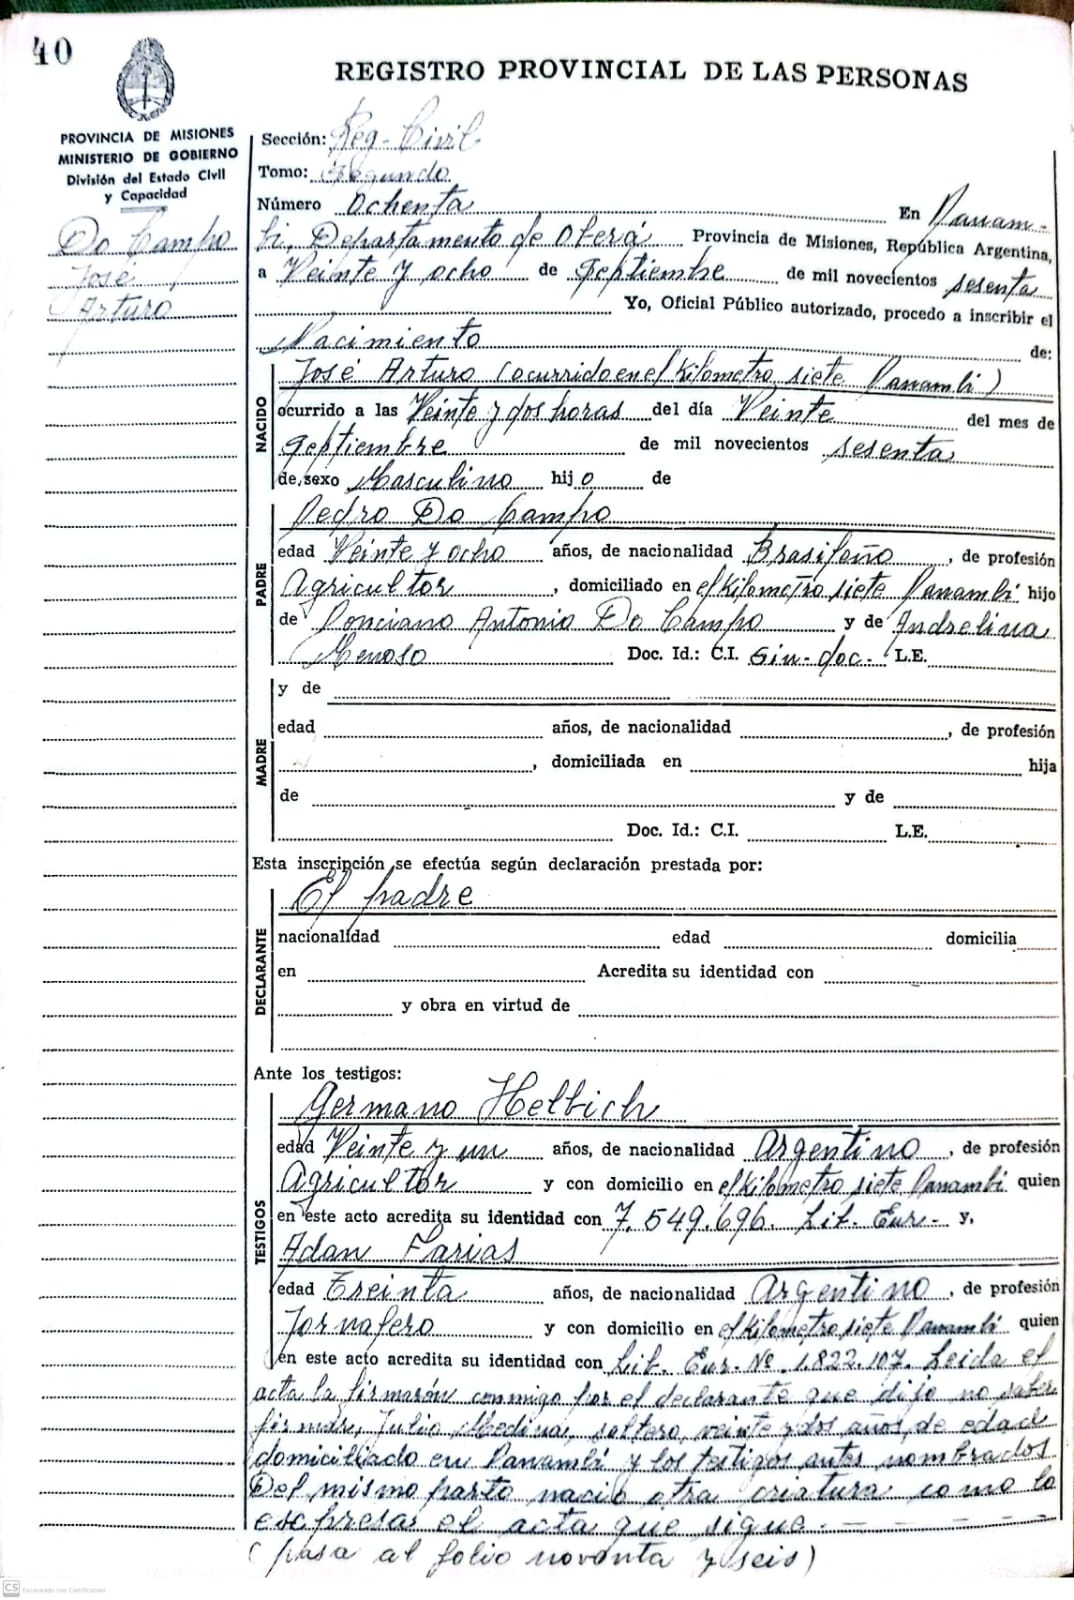 40
REGISTRO PROVINCIAL DE LAS PERSONAS
PROVINCIA DE MISIONES
MINISTERIO DE GOBIERNO
División del Estado Civil
y Capacidad
Do Campo
José
Arturo
Sección: Reg. Civil
Tomo: Segundo
Número Ochenta En Panam-
bi, Departamento de Oberá Provincia de Misiones, República Argentina,
a Veinte y ocho de Septiembre de mil novecientos sesenta
Yo, Oficial Público autorizado, procedo a inscribir el
Nacimiento de:
NACIDO
José Arturo (ocurrido en el kilometro siete Panambi)
ocurrido a las Veinte y dos horas del día Veinte del mes de
Septiembre de mil novecientos sesenta
de sexo Masculino hijo de
PADRE
Pedro Do Campo
edad Veinte y ocho años, de nacionalidad Brasileño, de profesión
Agricultor, domiciliado en el kilometro siete Panambi hijo
de Ponciano Antonio Do Campo y de Andrelina
Doc. Id.: C.I. Sin-doc. L.E.
MADRE
y de
edad años, de nacionalidad , de profesión
, domiciliada en hija
de y de
Doc. Id.: C.I. L.E.
Esta inscripción se efectúa según declaración prestada por:
DECLARANTE
El padre
nacionalidad edad domicilia
en Acredita su identidad con
y obra en virtud de
Ante los testigos:
TESTIGOS
Germano Helbich
edad Veinte y un años, de nacionalidad Argentino, de profesión
Agricultor y con domicilio en el kilometro siete Panambi quien
en este acto acredita su identidad con 7.549.696. Lib. Enr. y,
Adan Farias
edad Treinta años, de nacionalidad Argentino, de profesión
Jornalero y con domicilio en el kilometro siete Panambi quien
en este acto acredita su identidad con Lib. Enr. Nº 1.822.107. Leida el
acta la firmarón conmigo por el declarante que dijo no saber
firmar, Julio Medina, soltero, veinte y dos años, de edad
domiciliado en Panambí y los testigos antes nombrados
Del mismo parto nació otra criatura como lo
espresa el acta que sigue. - - - - -
(pasa al folio noventa y seis)
CS Escaneado con CamScanner